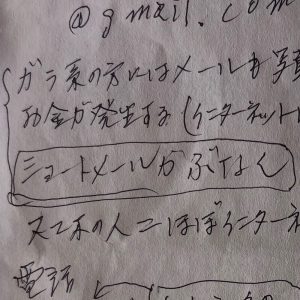 @gmail.com
ガラ系の方にはメールも写
お金が発生する(インターネット
ショートメールがぶなん
スマホの人=ほぼインターネ
電話